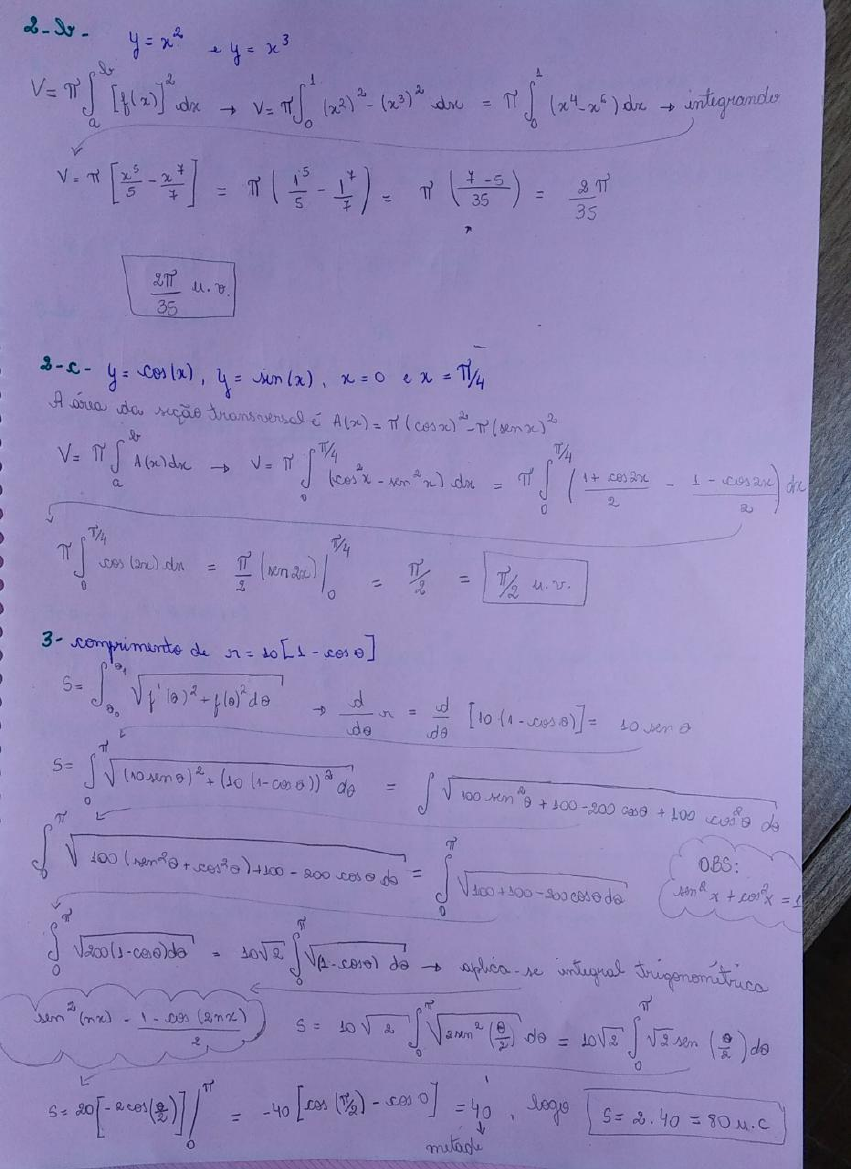 2-b- y = x² e y = x³
V = π ∫ₐᵇ [f(x)]² dx → V = π ∫₀¹ (x²)² - (x³)² dx = π ∫₀¹ (x⁴ - x⁶) dx → integrando
V = π [x⁵/5 - x⁷/7] = π (1⁵/5 - 1⁷/7) = π ((7-5)/35) = 2π/35
2π/35 u.v.
2-c- y = cos(x), y = sin(x), x = 0 e x = π/4
A área da seção transversal é A(x) = π(cosx)² - π(senx)²
V = π ∫ₐᵇ A(x) dx → V = π ∫₀^π/4 (cos²x - sen²x) dx = π ∫₀^π/4 ((1 + cos2x)/2 - (1 - cos2x)/2) dx
π ∫₀^π/4 cos(2x) dx = π/2 (sen2x) |₀^π/4 = π/2 = π/2 u.v.
3- comprimento de r = 10[1 - cosθ]
S = ∫_θ₀^θ₁ √(f'(θ)² + f(θ)² dθ) → d/dθ r = d/dθ [10(1 - cosθ)] = 10 senθ
S = ∫₀^π √((10senθ)² + (10(1-cosθ))² dθ) = ∫ √(100 sen²θ + 100 - 200 cosθ + 100 cos²θ dθ)
∫₀^π √(100(sen²θ + cos²θ) + 100 - 200 cosθ dθ) = ∫₀^π √(100 + 100 - 200cosθ dθ)
OBS:
sen²x + cos²x = 1
∫₀^π √(200(1-cosθ)dθ) = 10√2 ∫₀^π √(1-cosθ) dθ → aplica-se integral trigonométrica
sen²(nx) - (1 - cos(2nx))/2
S = 10√2 ∫₀^π √(2sen²(θ/2)) dθ = 10√2 ∫₀^π √2 sen(θ/2) dθ
S = 20[-2cos(θ/2)] |₀^π = -40[cos(π/2) - cos0] = 40, logo S = 2.40 = 80 u.c
metade